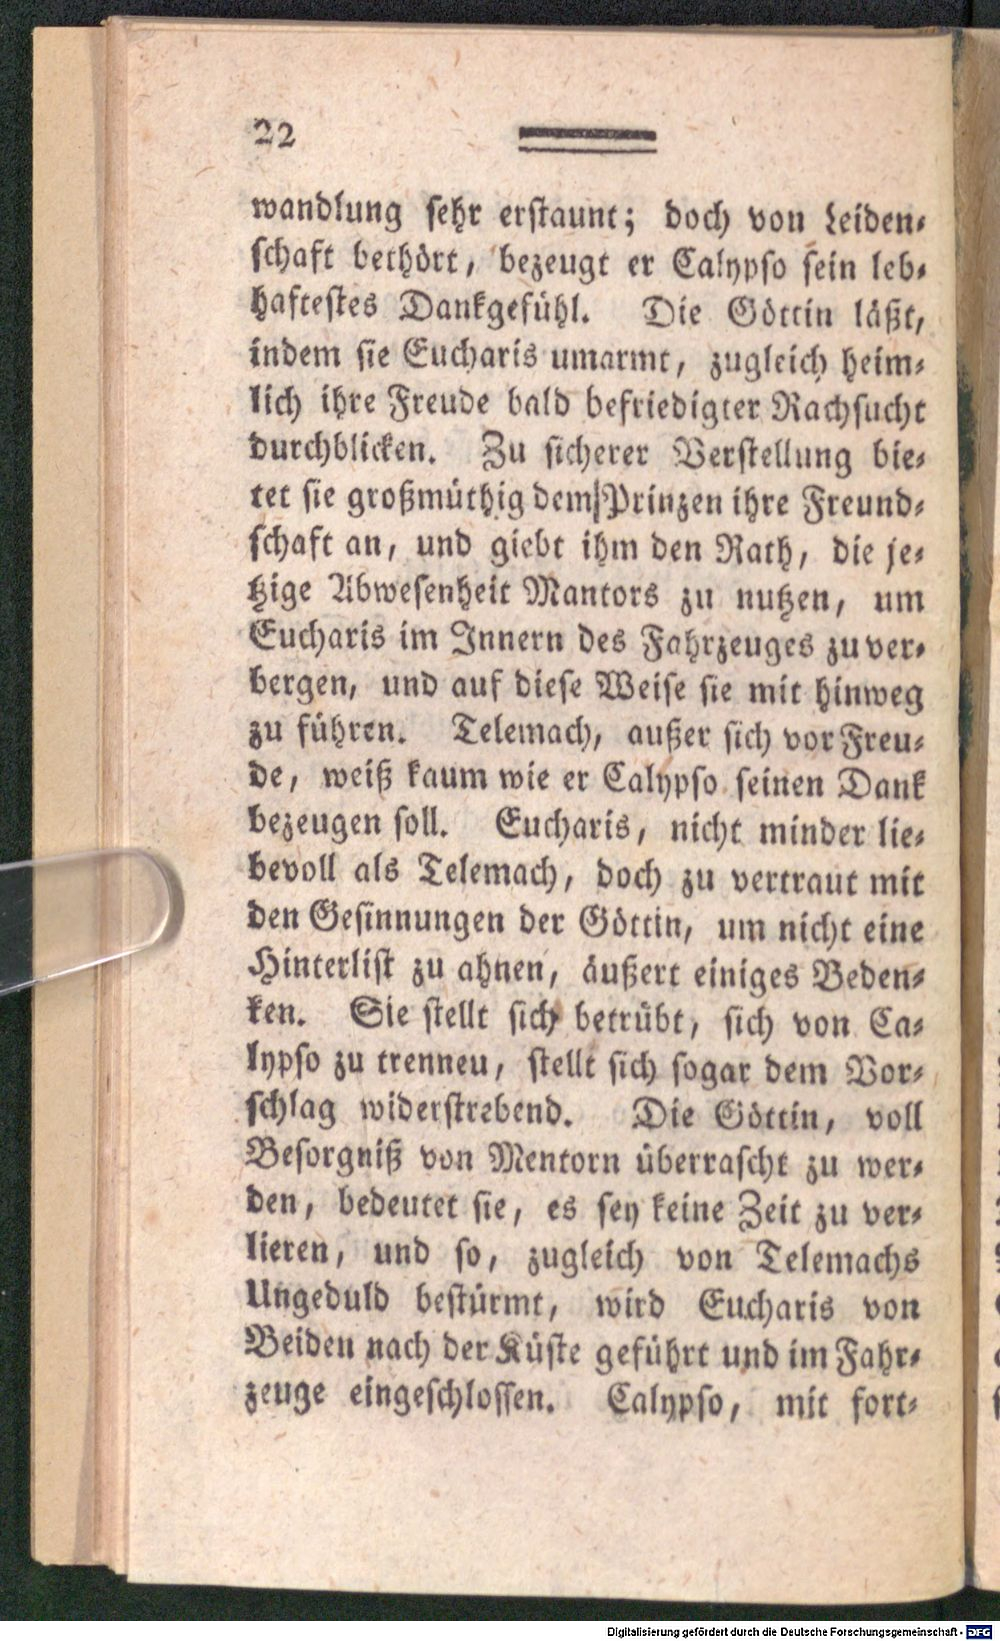 22
wandlung sehr erstaunt; doch von Leiden-
schaft bethört, bezeugt er Calypso sein leb-
haftestes Dankgefühl. Die Göttin läßt,
indem sie Eucharis umarmt, zugleich heim-
lich ihre Freude bald befriedigter Rachsucht
durchblicken. Zu sicherer Verstellung bie-
tet sie großmüthig dem Prinzen ihre Freund-
schaft an, und giebt ihm den Rath, die je-
tzige Abwesenheit Mantors zu nutzen, um
Eucharis im Innern des Fahrzeuges zu ver-
bergen, und auf diese Weise sie mit hinweg
zu führen. Telemach, außer sich vor Freu-
de, weiß kaum wie er Calypso seinen Dank
bezeugen soll. Eucharis, nicht minder lie-
bevoll als Telemach, doch zu vertraut mit
den Gesinnungen der Göttin, um nicht eine
Hinterlist zu ahnen, äußert einiges Beden-
ken. Sie stellt sich betrübt, sich von Ca-
lypso zu trenneu, stellt sich sogar dem Vor-
schlag widerstrebend. Die Göttin, voll
Besorgniß von Mentorn überrascht zu wer-
den, bedeutet sie, es sey keine Zeit zu ver-
lieren, und so, zugleich von Telemachs
Ungeduld bestürmt, wird Eucharis von
Beiden nach der Küste geführt und im Fahr-
zeuge eingeschlossen. Calypso, mit fort-
Digitalisierung gefördert durch die Deutsche Forschungsgemeinschaft - DFG